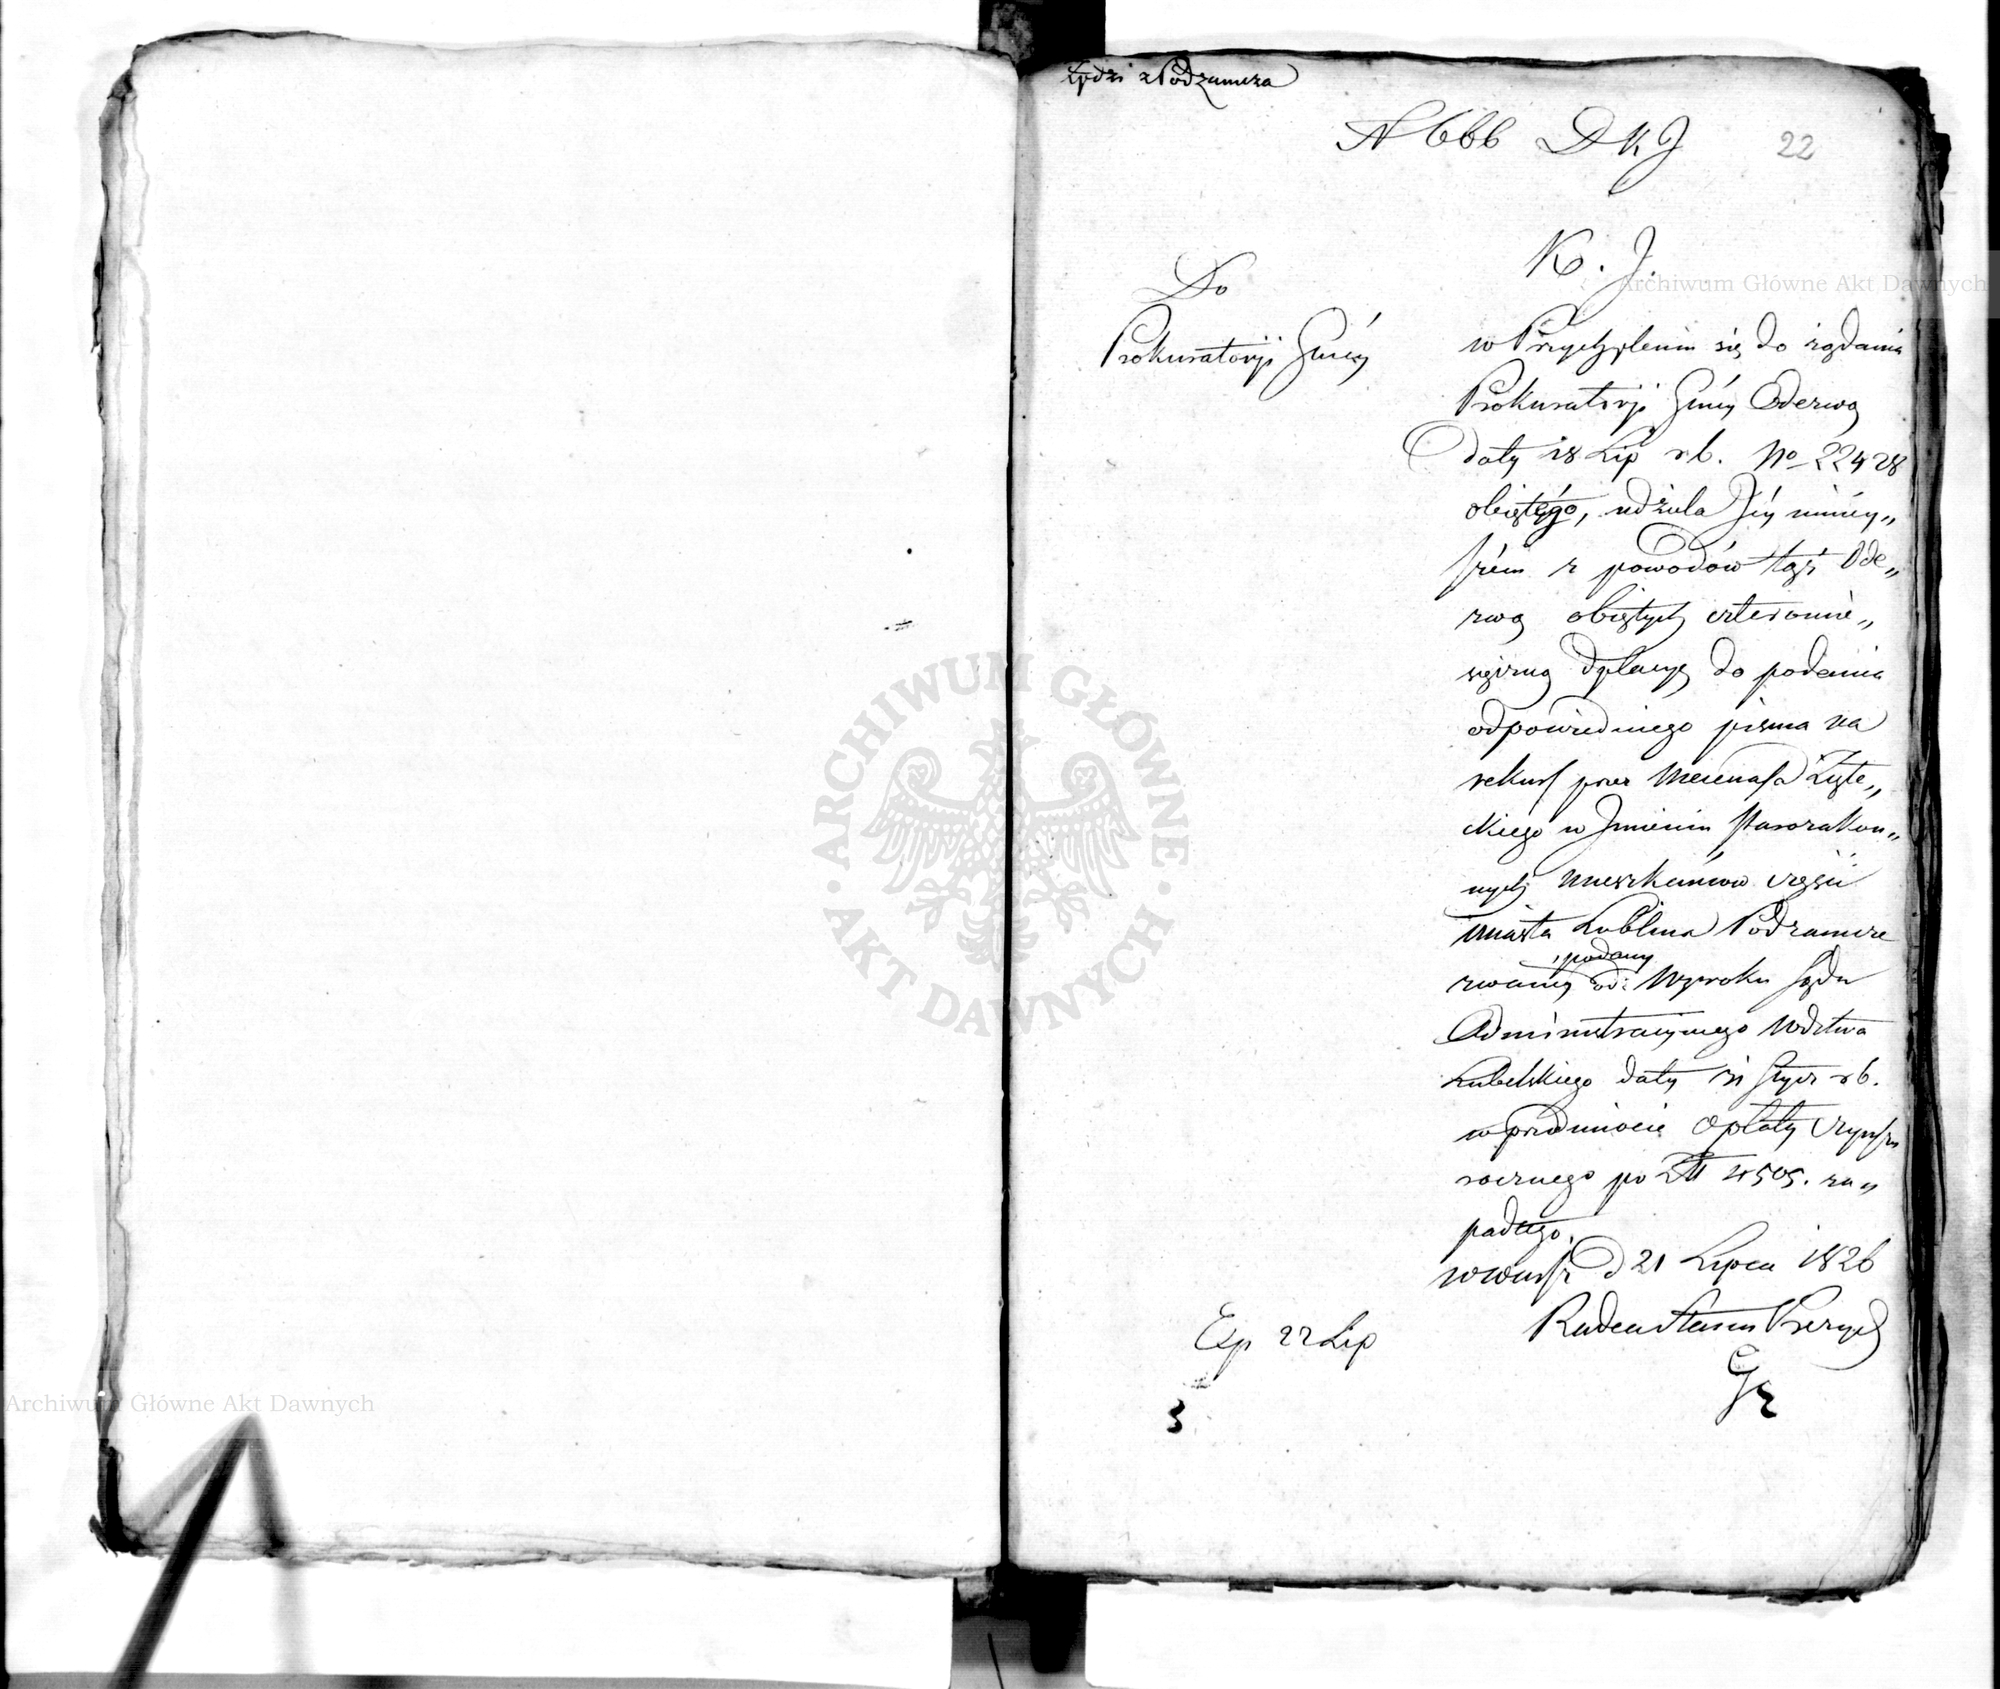 Żydzi z Podzamcza
N 666 D K J 22
K. J.
Do
Prokuratorji Gnéy
w Przychyleniu się do żądania
Prokuratorji Gnéy Odezwą
daty 18 Lip rb. No 22428
objętégo, udziela Jéy niniéy„
szém z powodów tąż Ode„
zwą objętych czteromie„
sięczną dylacyę do podania
odpowiedniego pisma na
rekurs przez Mecenasa
ckiego w Jmieniu starozakon„
nych Mieszkańców części
miasta Lublina Podzamcze
zwaney, podany od Wyroku Sądu
Administracyjnego Wdztwa
Lubelskiego daty Stycz rb.
w przedmiocie opłaty czynszu
rocznego po Zł 4505. za„
padłego.
w Warsz d 21 Lipca 1826
Radca Stanu Prezyd
Exp 22 Lip
Archiwum Główne Akt Dawnych
Archiwum Główne Akt Dawnych
ARCHIWUM GŁÓWNE
AKT DAWNYCH